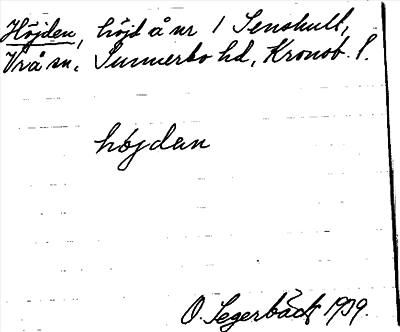 Höjden, höjd å nr 1 Senshult,
Vrå sn. Sunnerbo hd, Kronob. l.
höjden
O. Segerbäck 1939.